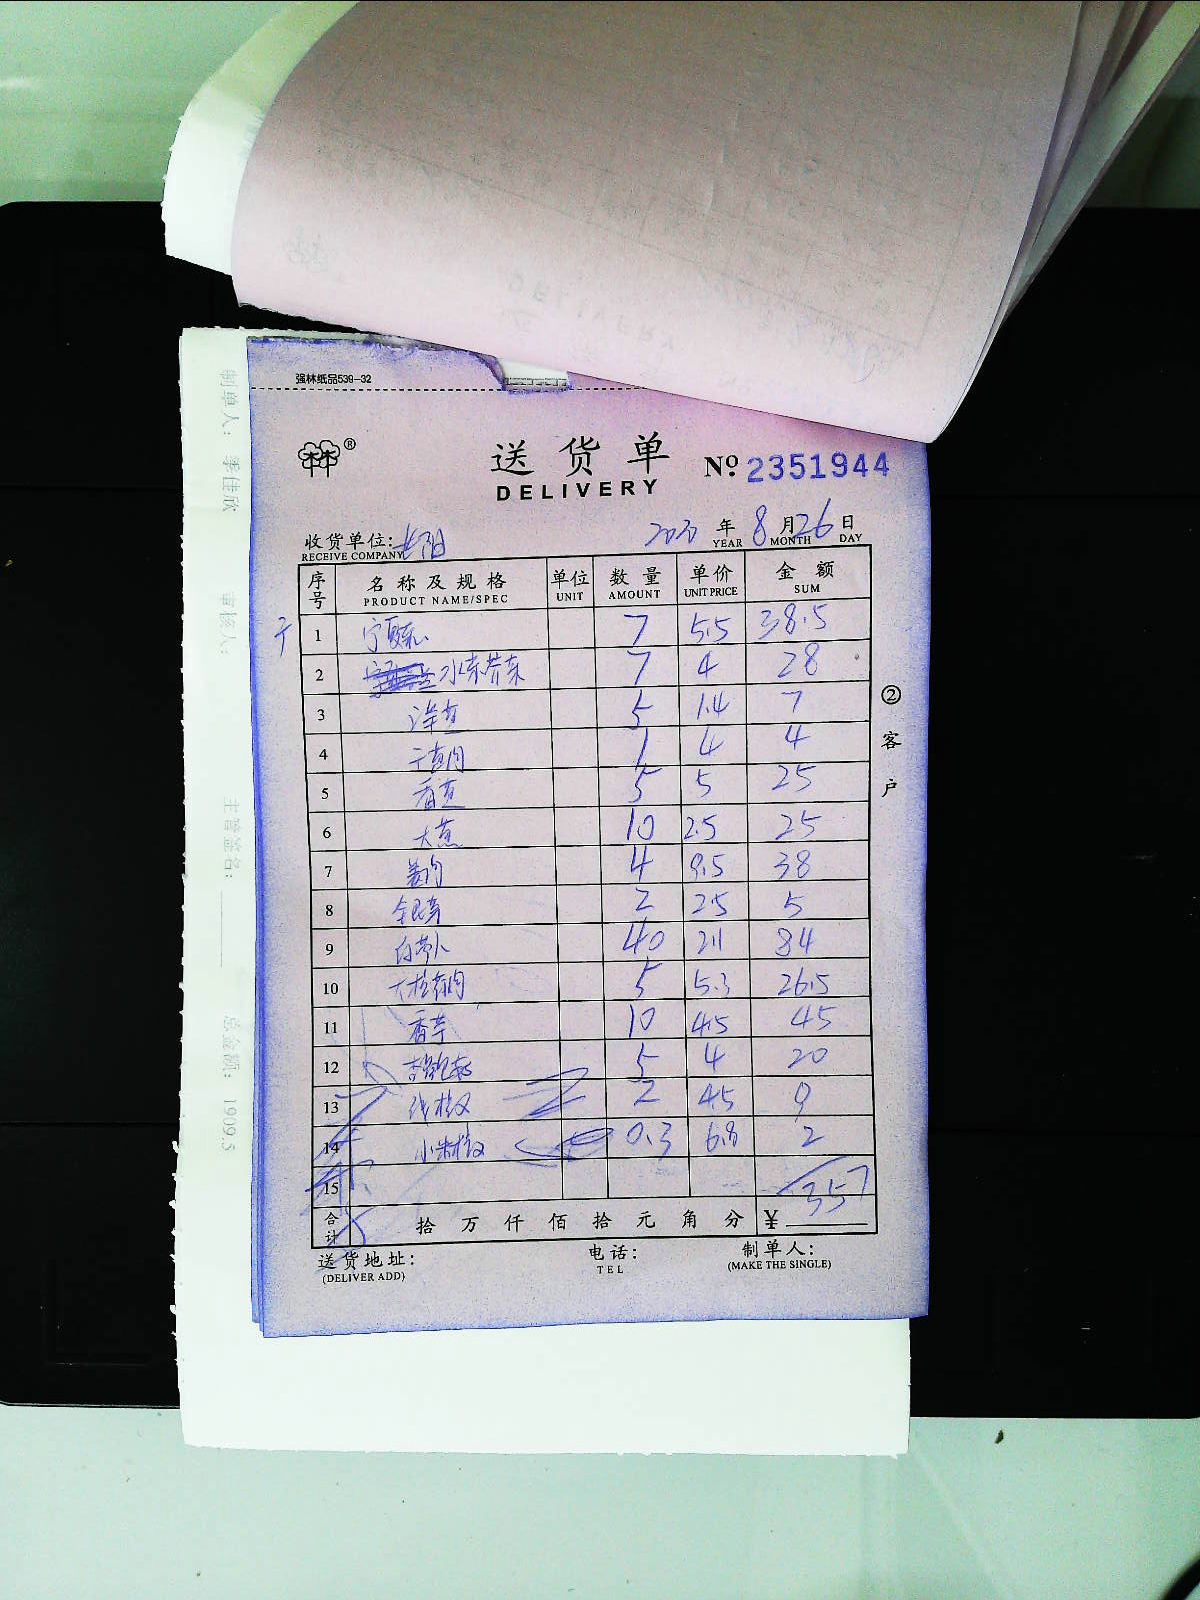 强林纸品539-32
林®
送货单 № 2351944
DELIVERY
收货单位: 2020 年 8 月 26 日
RECEIVE COMPANY YEAR MONTH DAY
序号 名称及规格 单位 数量 单价 金额
PRODUCT NAME/SPEC UNIT AMOUNT UNIT PRICE SUM
1 宁夏菜心 7 5.5 38.5
2 水东芥菜 7 4 28
3 洋葱 5 1.4 7
4 干葱肉 1 4 4
5 香葱 5 5 25
6 大蕉 10 2.5 25
7 姜肉 4 9.5 38
8 银芽 2 2.5 5
9 白萝卜 40 2.1 84
10 5 5.3 26.5
11 香芋 10 4.5 45
12 5 4 20
13 线椒 2 4.5 9
14 小米椒 0.3 6.8 2
15
357
合计 拾 万 仟 佰 拾 元 角 分 ¥
送货地址: 电话: 制单人:
(DELIVER ADD) TEL (MAKE THE SINGLE)
② 客户
制单人: 季佳欣
审核人:
主管签名:
总金额: 1909.5